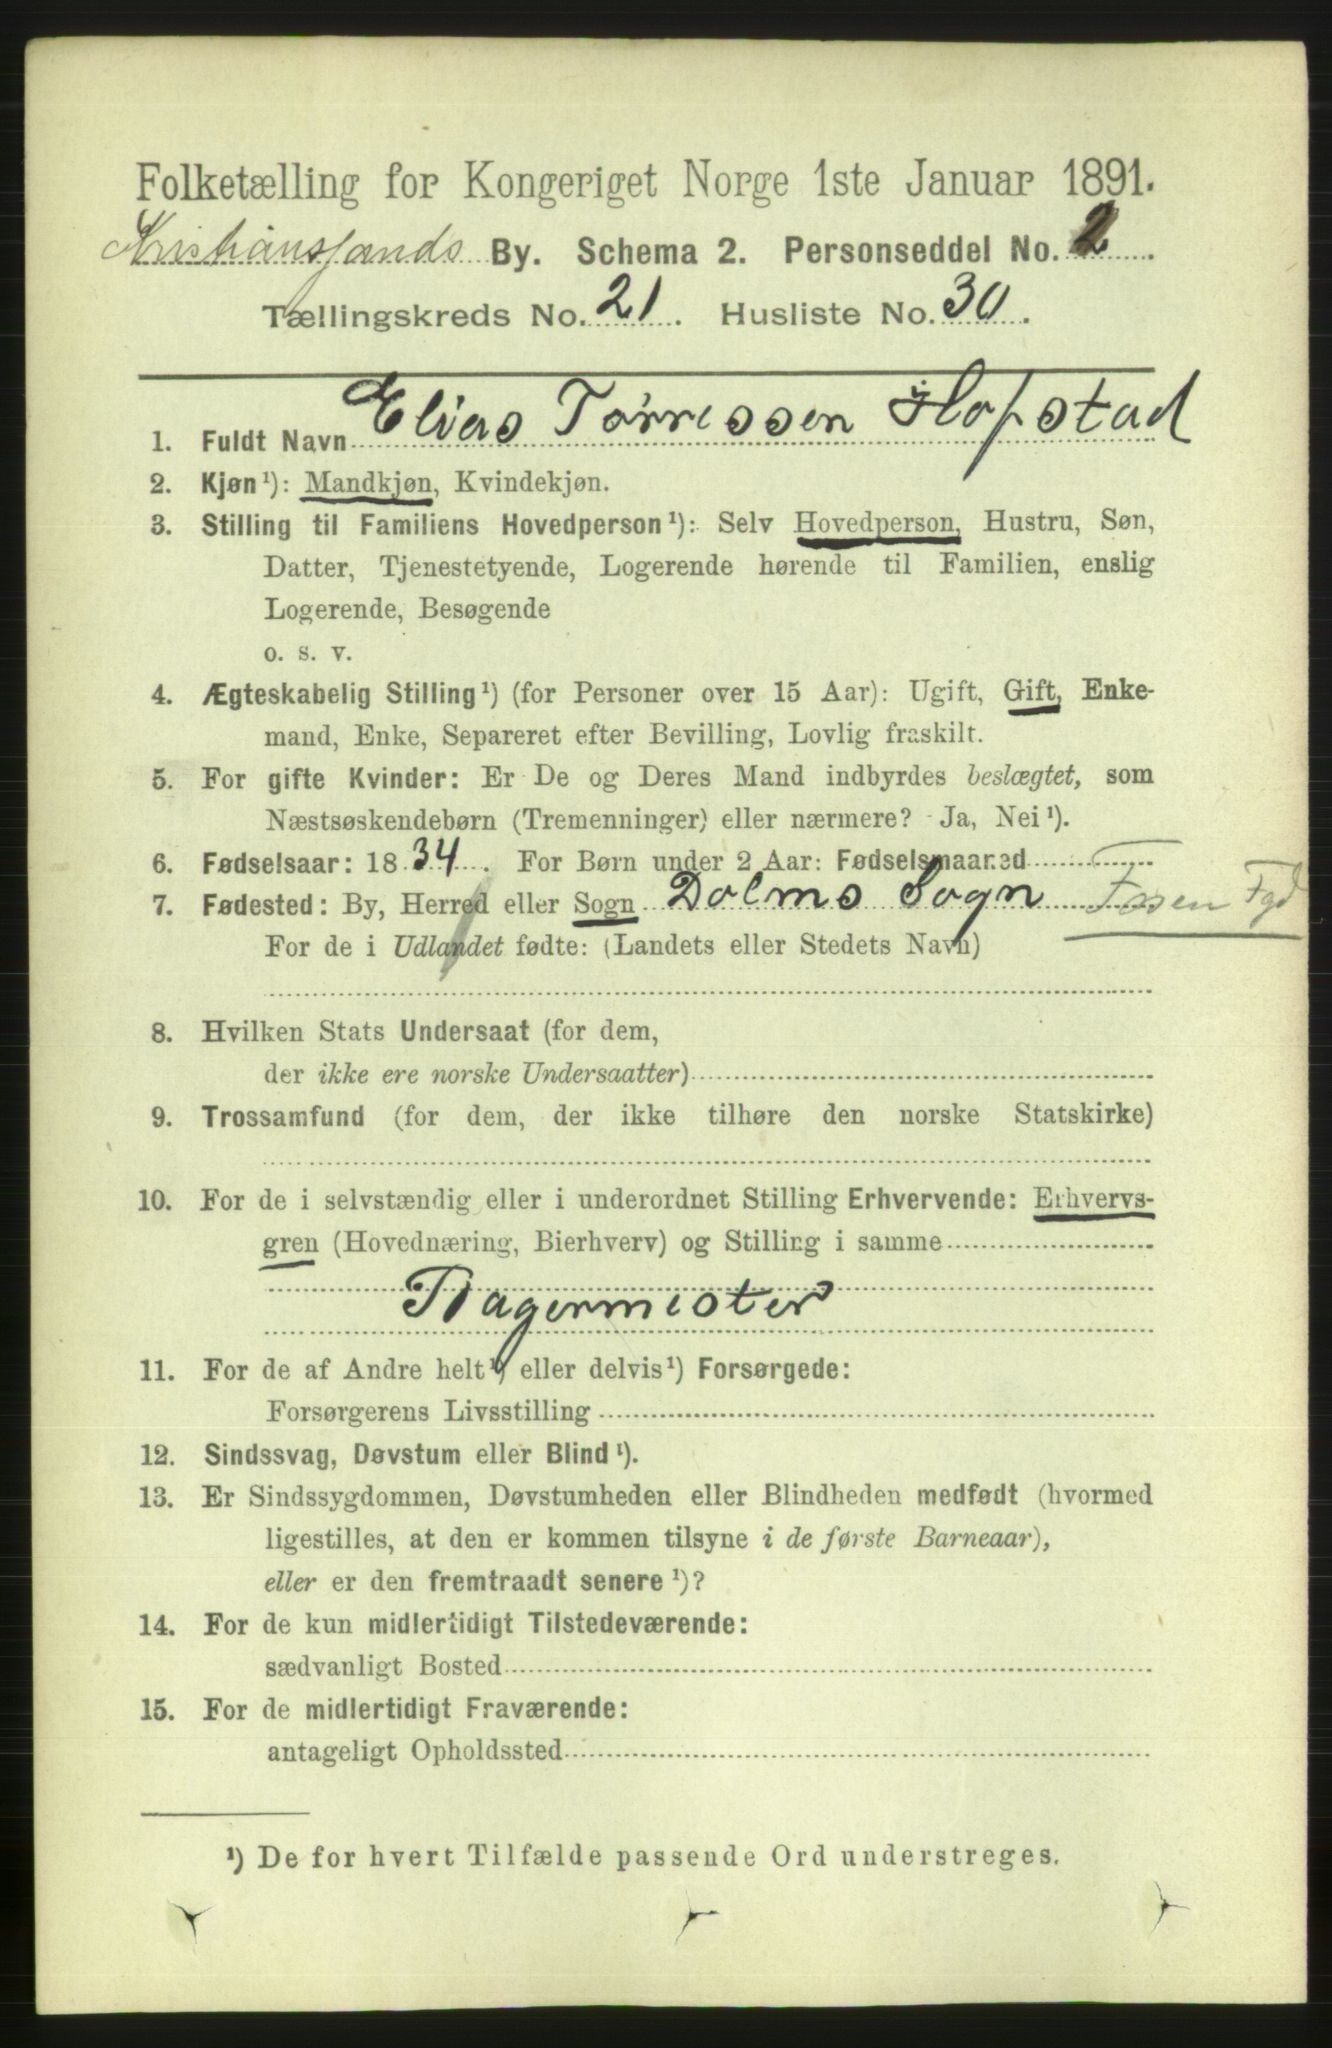 Folketælling for Kongeriget Norge 1ste Januar 1891.
Kristiansands By. Schema 2. Personseddel No. 2
Tællingskreds No. 21. Husliste No. 30.
1. Fuldt Navn Elias Tørressen Hofstad
2. Kjøn¹): Mandkjøn, Kvindekjøn.
3. Stilling til Familiens Hovedperson¹): Selv Hovedperson, Hustru, Søn,
Datter, Tjenestetyende, Logerende hørende til Familien, enslig
Logerende, Besøgende
o. s. v.
4. Ægteskabelig Stilling¹) (for Personer over 15 Aar): Ugift, Gift, Enke-
mand, Enke, Separeret efter Bevilling, Lovlig fraskilt.
5. For gifte Kvinder: Er De og Deres Mand indbyrdes beslægtet, som
Næstsøskendebørn (Tremenninger) eller nærmere? Ja, Nei¹).
6. Fødselsaar: 1834. For Børn under 2 Aar: Fødselsmaaned
7. Fødested: By, Herred eller Sogn Dolms Sogn Fosen Fgd
For de i Udlandet fødte: (Landets eller Stedets Navn)
8. Hvilken Stats Undersaat (for dem,
der ikke ere norske Undersaatter)
9. Trossamfund (for dem, der ikke tilhøre den norske Statskirke)
10. For de i selvstændig eller i underordnet Stilling Erhvervende: Erhvervs-
gren (Hovednæring, Bierhverv) og Stilling i samme
Bagermester
11. For de af Andre helt¹) eller delvis¹) Forsørgede:
Forsørgerens Livsstilling
12. Sindssvag, Døvstum eller Blind¹).
13. Er Sindssygdommen, Døvstumheden eller Blindheden medfødt (hvormed
ligestilles, at den er kommen tilsyne i de første Barneaar),
eller er den fremtraadt senere¹)?
14. For de kun midlertidigt Tilstedeværende:
sædvanligt Bosted
15. For de midlertidigt Fraværende:
antageligt Opholdssted
¹) De for hvert Tilfælde passende Ord understreges.